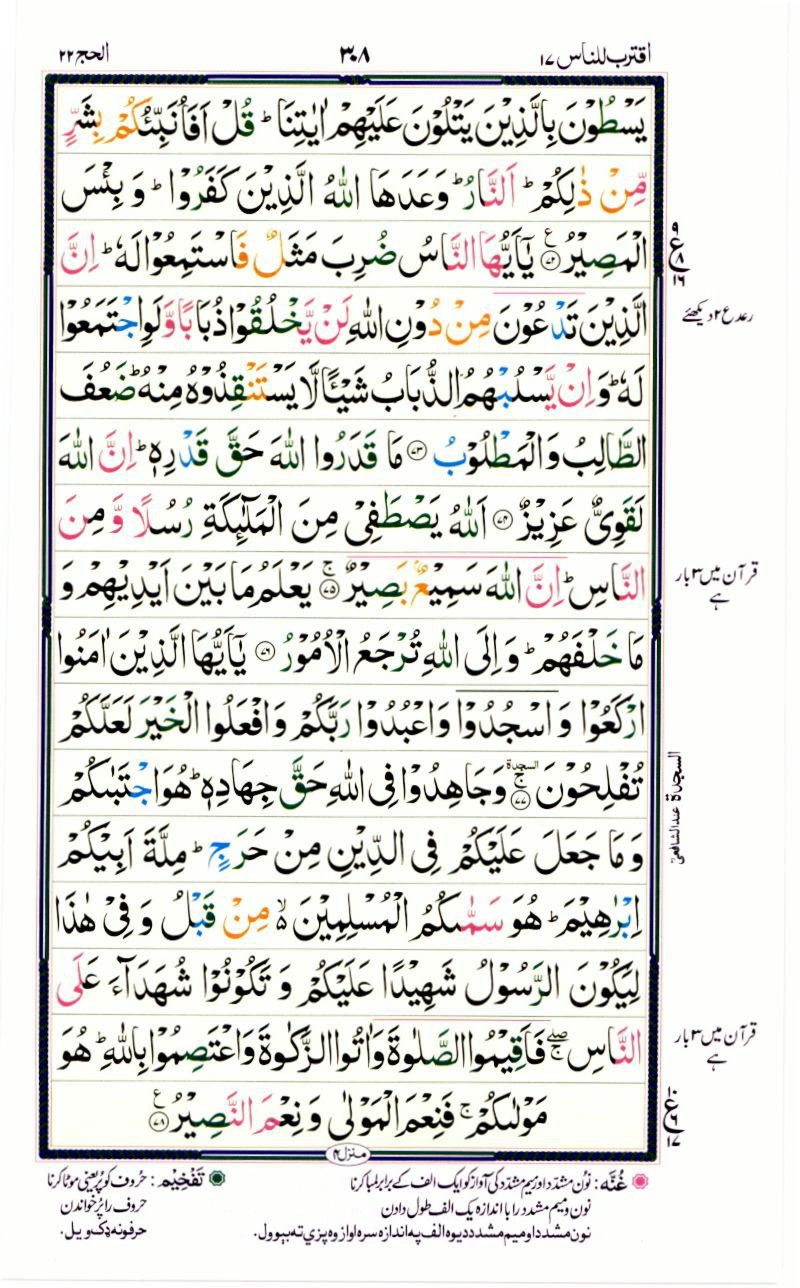 اقترب للناس ۱۷
۳۰۸
الحج ۲۲
يَسْطُوْنَ بِالَّذِيْنَ يَتْلُوْنَ عَلَيْهِمْ اٰيٰتِنَا ؕ قُلْ اَفَاُنَبِّئُكُمْ بِشَرٍّ
مِّنْ ذٰلِكُمْ ؕ اَلنَّارُ ؕ وَعَدَهَا اللّٰهُ الَّذِيْنَ كَفَرُوْا ؕ وَ بِئْسَ
الْمَصِيْرُ ﴿۷۲﴾ يٰۤاَيُّهَا النَّاسُ ضُرِبَ مَثَلٌ فَاسْتَمِعُوْا لَهٗ ؕ اِنَّ
الَّذِيْنَ تَدْعُوْنَ مِنْ دُوْنِ اللّٰهِ لَنْ يَّخْلُقُوْا ذُبَابًا وَّلَوِ اجْتَمَعُوْا
لَهٗ ؕ وَاِنْ يَّسْلُبْهُمُ الذُّبَابُ شَيْـًٔا لَّا يَسْتَنْقِذُوْهُ مِنْهُ ؕ ضَعُفَ
الطَّالِبُ وَالْمَطْلُوْبُ ﴿۷۳﴾ مَا قَدَرُوا اللّٰهَ حَقَّ قَدْرِهٖ ؕ اِنَّ اللّٰهَ
لَقَوِيٌّ عَزِيْزٌ ﴿۷۴﴾ اَللّٰهُ يَصْطَفِيْ مِنَ الْمَلٰٓئِكَةِ رُسُلًا وَّ مِنَ
النَّاسِ ؕ اِنَّ اللّٰهَ سَمِيْعٌۢ بَصِيْرٌ ۚ﴿۷۵﴾ يَعْلَمُ مَا بَيْنَ اَيْدِيْهِمْ وَ
مَا خَلْفَهُمْ ؕ وَ اِلَى اللّٰهِ تُرْجَعُ الْاُمُوْرُ ﴿۷۶﴾ يٰۤاَيُّهَا الَّذِيْنَ اٰمَنُوا
ارْكَعُوْا وَ اسْجُدُوْا وَاعْبُدُوْا رَبَّكُمْ وَافْعَلُوا الْخَيْرَ لَعَلَّكُمْ
تُفْلِحُوْنَ ۚ السجدة ﴿۷۷﴾ وَجَاهِدُوْا فِي اللّٰهِ حَقَّ جِهَادِهٖ ؕ هُوَ اجْتَبٰىكُمْ
وَ مَا جَعَلَ عَلَيْكُمْ فِي الدِّيْنِ مِنْ حَرَجٍ ؕ مِلَّةَ اَبِيْكُمْ
اِبْرٰهِيْمَ ؕ هُوَ سَمّٰىكُمُ الْمُسْلِمِيْنَ ۙ مِنْ قَبْلُ وَ فِيْ هٰذَا
لِيَكُوْنَ الرَّسُوْلُ شَهِيْدًا عَلَيْكُمْ وَ تَكُوْنُوْا شُهَدَآءَ عَلَى
النَّاسِ ۚۖ فَاَقِيْمُوا الصَّلٰوةَ وَاٰتُوا الزَّكٰوةَ وَاعْتَصِمُوْا بِاللّٰهِ ؕ هُوَ
مَوْلٰىكُمْ ۚ فَنِعْمَ الْمَوْلٰى وَ نِعْمَ النَّصِيْرُ ﴿۷۸﴾
ع
۸
۱۶
رعد ع ۲ دیکھئے
قرآن میں ۳ بار
ہے
السجدة عند الشافعیؒ
قرآن میں ۳ بار
ہے
۱۰
ع
۶
۱۷
منزل ۴
غُنَّه : نون مشدّد اور میم مشدّد کی آواز کو ایک الف کے برابر لمبا کرنا
نون و میم مشدد را با اندازه یک الف طول دادن
نون مشدد او میم مشدد دیوه الف په اندازه سره اواز وه پزي ته بیوول.
تَفْخِيْم : حُروف کو پُر یعنی موٹا کرنا
حروف را پُر خواندن
حرفونه ډک ویل.